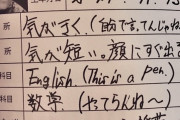 所 気が多く。(的です。てんじゃね
所 気が短い。顔にすぐ出る
科目 English (This is a pen.)
科目 数学 (やってらんね〜)